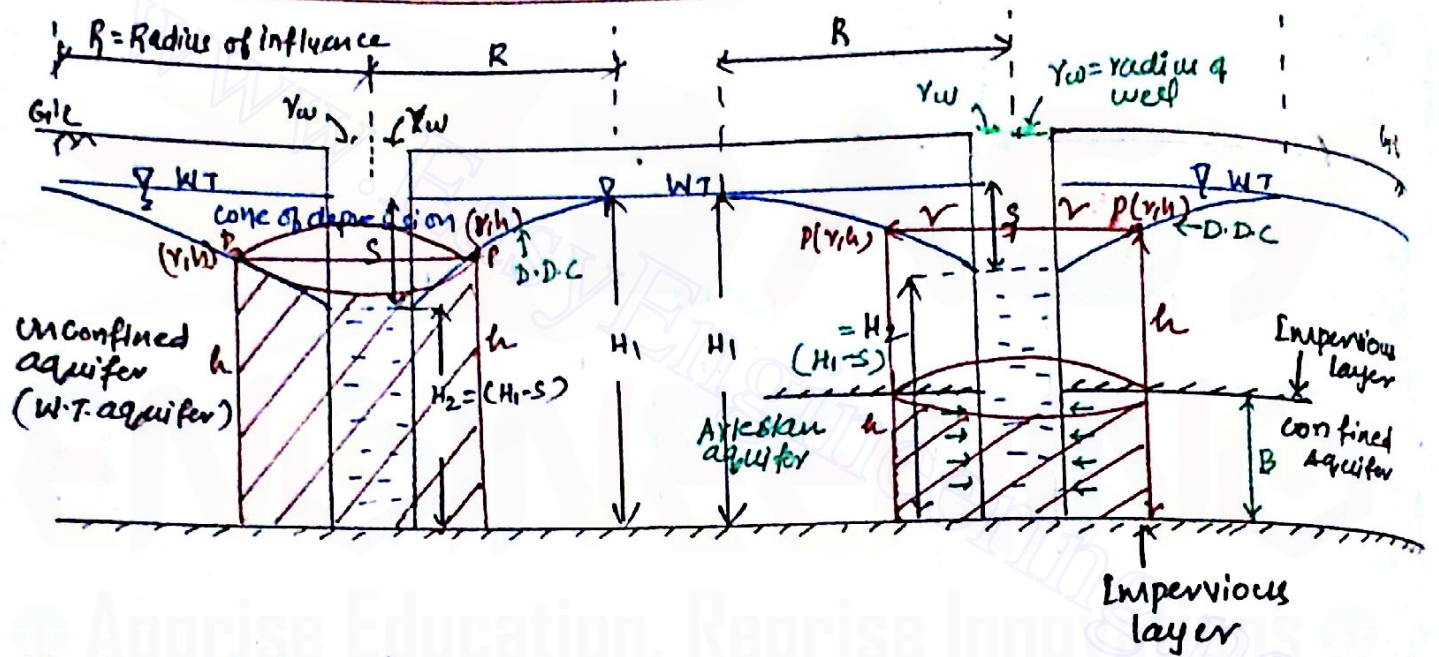 R = Radius of influence
R
R
rw
rw
rw
rw = radius of
well
G.L
WT
WT
WT
cone of depression
(r,h)
(r,h)
P
P
S
D.D.C
S
r
r
P(r,h)
P(r,h)
D.D.C
Unconfined
aquifer
(W.T. aquifer)
h
h
H2 = (H1-S)
H1
H1
= H2
(H1-S)
h
Impervious
layer
Artesian
aquifer
h
B
confined
Aquifer
Impervious
layer
www.EasyEngineering
Apprise Education, Reprise Innovations